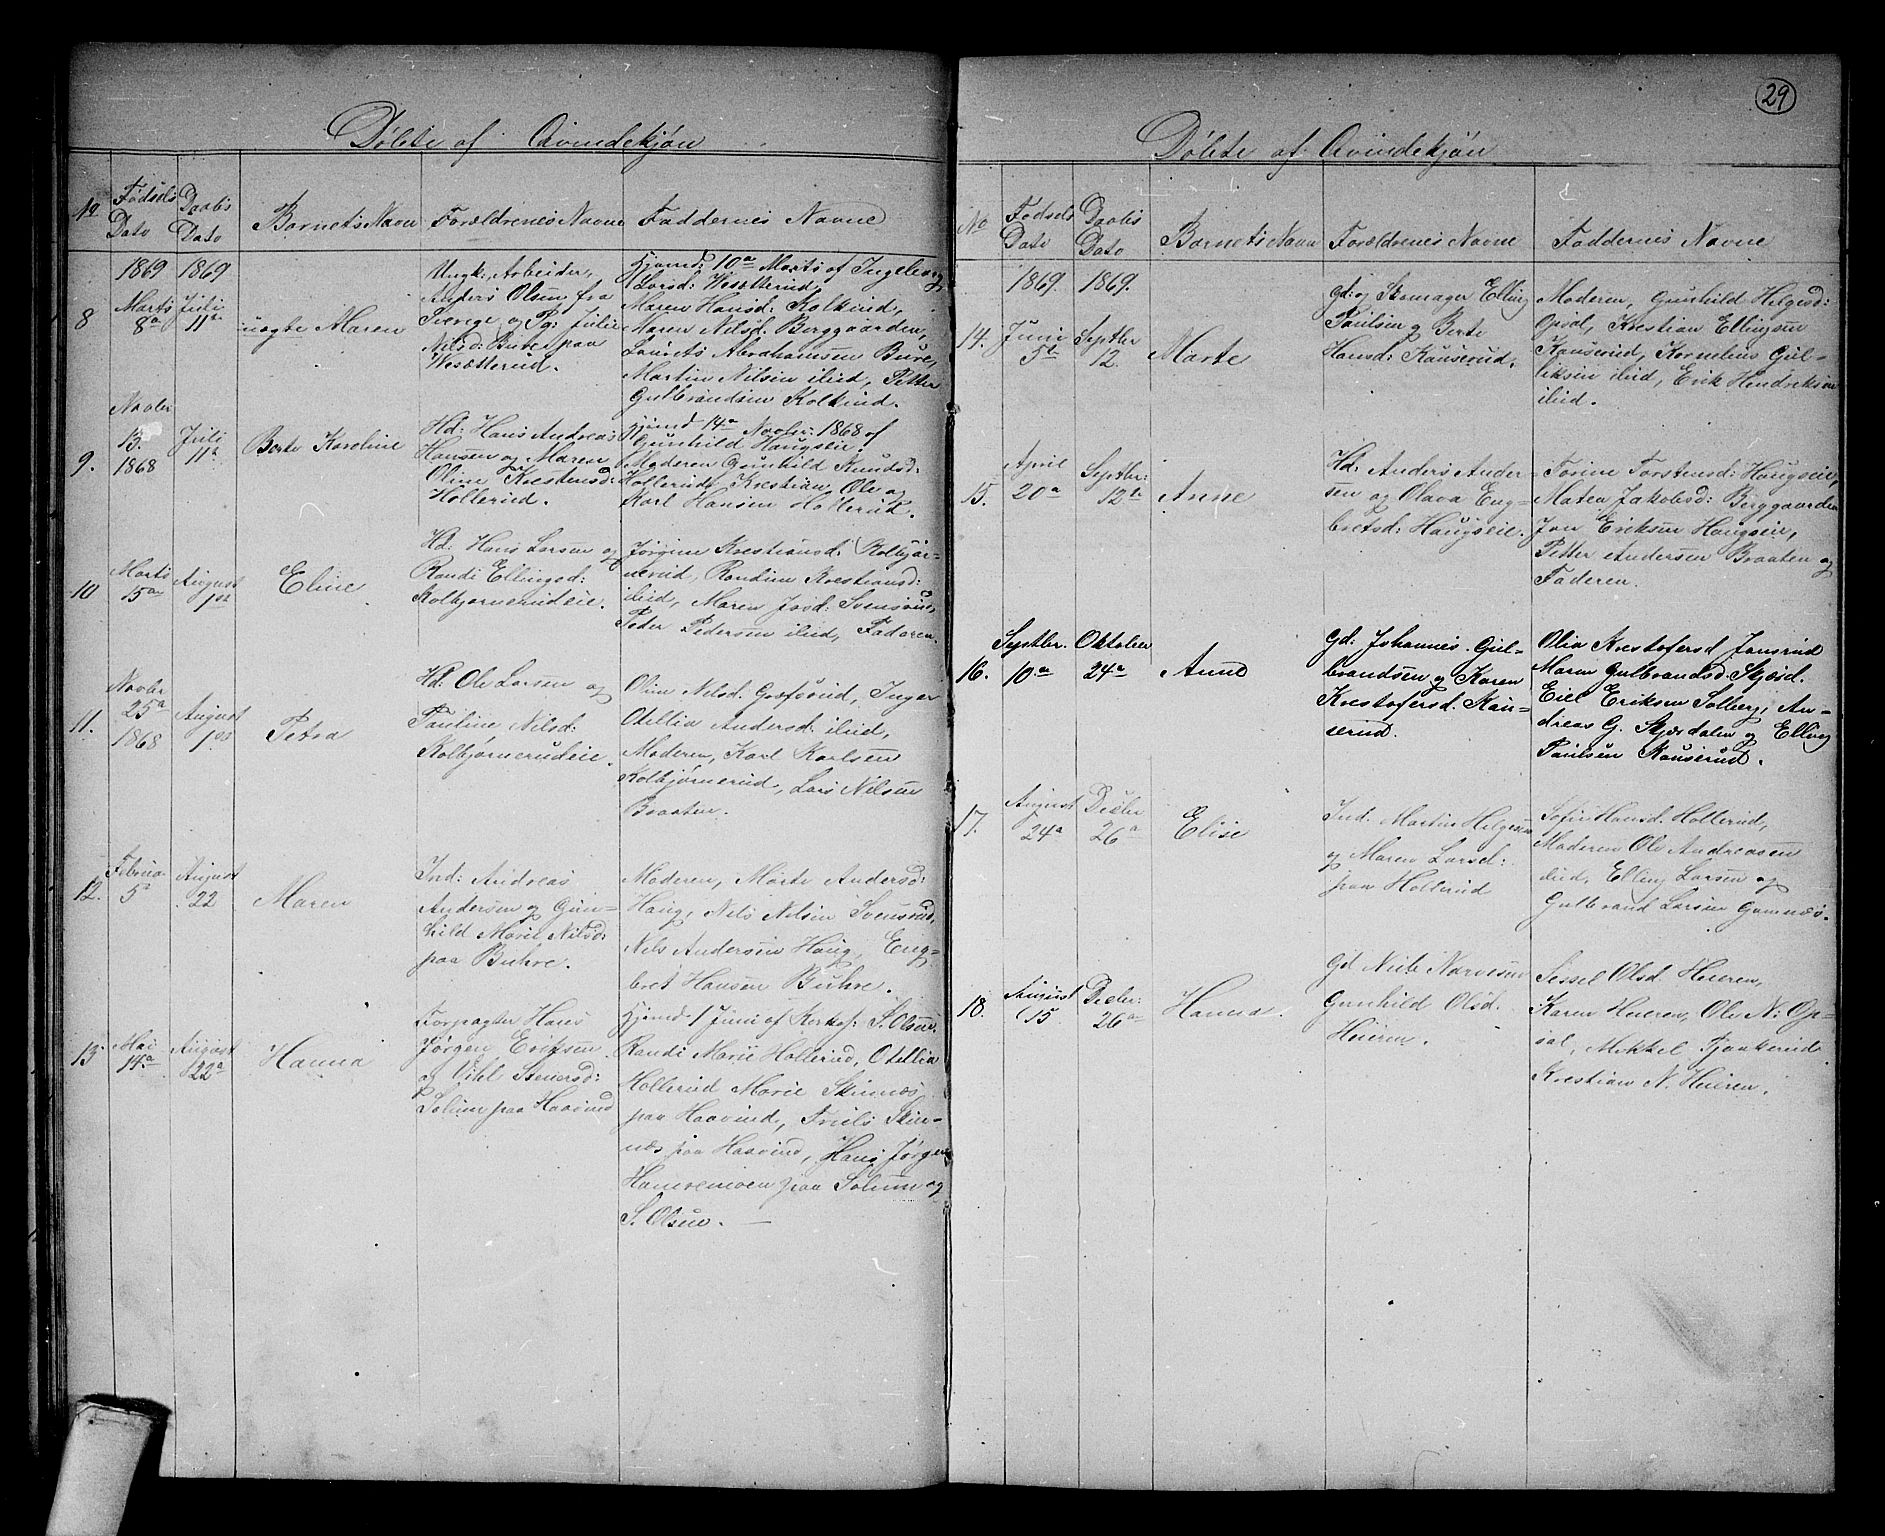 Døbte af Qvindekjøn
No
Fødsels Dato
Daabs Dato
Barnets Navn
Forældrenes Navne
Faddernes Navne
8
1869 Marts 8de
1869 Juli 11te
uægte Maren
Ungk: Arbeider,
Anders Olsen fra
Sverige og Pg: Julie
Nilsd: Bure paa
Wesætterud.
hjemd: 10de Marts af Ingeborg
Larsd: Wesætterud,
Maren Hansd: Kolkind,
Maren Nilsd: Berggaarden,
Laurets Abrahamsen Bure,
Martin Nilsen ibid, Petter
Gulbrandsen Kolkind.
9.
Novbr 13. 1868
Juli 11te
Berte Karoline
Hd: Hans Andreas
Hansen og Maren
Oline Krestensd:
Hollerud.
hjemd 14de Novbr: 1868 af
Gunhild Haugseie.
Moderen Gunhild Knudsd:
Hollerud, Krestian Ole og
Karl Hansen Hollerud.
10
Marts 15de
August 1ste
Eline
Hd: Hans Larsen og
Randi Ellingsd:
Kolbjørnerudeie.
Jørgine Krestiansd: Kolbjør-
nerud, Randine Krestiansd:
ibid, Maren Josd: Svensrud,
Peder Pedersen ibid, Faderen.
11.
Novbr 25de 1868
August 1ste
Petra
Hd: Ole Larsen og
Pauline Nilsd:
Kolbjørnerudeie.
Oline Nilsd. Græfsrud, Inger
Odellia Andersd: ibid,
Moderen, Karl Karlsen
Kolbjørnerud, Lars Nilsen
Braaten.
12.
Februar 5te
August 22
Maren
Ind: Andreas
Andersen og Gun-
hild Marie Nilsd:
paa Buhre.
Moderen, Marte Andersd:
Haug, Nils Nilsen Svensrud,
Nils Andersen Haug, Eng-
bret Hansen Buhre.
13.
Mai 14de
August 22de
Hanna
Forpagter Hans
Jørgen Eriksen
og Stenersd:
Solum paa Haavind
hjemd 1 Juni af Kerkes: S. Olsen.
Randi Marie Hollerud, Odellia
Hollerud Marie Skinnes
paa Haavind, Truls Skin-
nes paa Haavind, Hans Jørgen
paa Solum og
S. Olsen. —
29
Døbte af Qvindekjøn
No
Fødsels Dato
Daabs Dato
Barnets Navn
Forældrenes Navne
Faddernes Navne
14.
1869. Juni 5te
1869. Septbr 12.
Marte
Gd: og Skomager Elling
Paulsen og Berte
Hansd: Kauserud.
Moderen, Gunhild Helgesd:
Opsal, Krestian Ellingsen
Kauserud, Kornelius Gul-
liksen ibid, Erik Hendriksen
ibid.
15.
April 20de
Septbr: 12te
Anne
Hd: Anders Ander-
sen og Olava Eng-
bretsd: Haugseie.
Torine Torstensd: Haugseie,
Matea Jakobsd: Berggaarden
Jon Eriksen Haugseie,
Petter Andersen Braaten og
Faderen.
16.
Septbr. 10de
Oktober 24de
Anne
Gd: Johannes Gul-
brandsen og Karen
Krestofersd. Kau-
serud.
Olia Krestofersd. Jonsrud
Maren Gulbrandsd. Skjæsd.
Eiel Eriksen Solberg, An-
dreas G. Skjærdalen og Elling
Paulsen Kauserud.
17.
August 24de
Decbr 26de
Elise
Ind. Martin Helgesen
og Maren Larsd:
paa Hollerud
Sofie Hansd. Hollerud,
Moderen Ole Andreasen
ibid, Elling Larsen og
Gulbrand Larsen Gamnæs.
18.
August 15
Decbr: 26de
Hanna.
Gd Niels Narvesen
Gunhild Olsd.
Heieren.
Sessel Olsd. Heieren,
Karen Heieren, Ole N: Op-
sal, Mekkel Tjonkerud
Krestian N. Heieren.